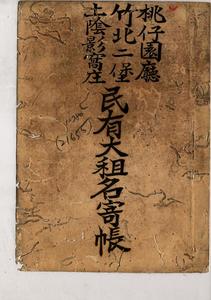 桃仔園廳
竹北二堡
上陰影窩庄
民有大租名寄帳
(21655)